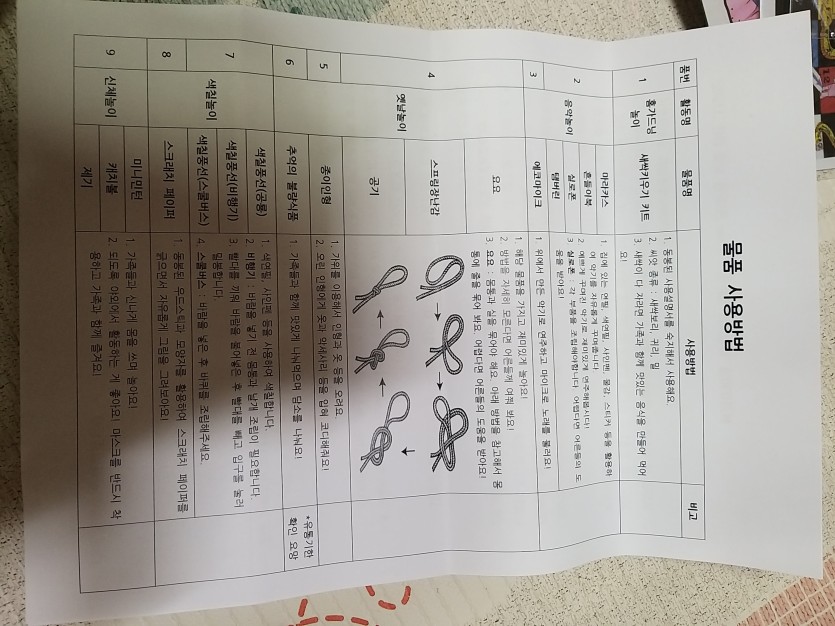 물품 사용방법
품번 활동명 물품명 사용방법 비고
1 홈가드닝 놀이 새싹키우기 키트
1. 동봉된 사용설명서를 숙지해서 사용해요.
2. 씨앗 종류 : 새싹보리, 귀리, 밀
3. 새싹이 다 자라면 가족과 함께 맛있는 음식을 만들어 먹어
요!
2 음악놀이
마라카스
흔들이북
실로폰
탬버린
1. 집에 있는 연필, 색연필, 사인펜, 물감, 스티커 등을 활용하
여 악기를 자유롭게 꾸며줍니다.
2. 예쁘게 꾸며진 악기로 재미있게 연주해봅시다!
3. 실로폰 : 각 부품을 조립해야합니다. 어렵다면 어른들의 도
움을 받아요.
3 에코마이크
1. 위에서 만든 악기로 연주하고 마이크로 노래를 불러요!
4 옛날놀이
요요
스프링장난감
공기
1. 해당 물품을 가지고 재미있게 놀아요!
2. 방법을 자세히 모르다면 어른들께 여쭤 봐요!
3. 요요 : 몸통과 실을 묶어야 해요. 아래 방법을 참고해서 몸
통에 줄을 묶어 봐요. 어렵다면 어른들의 도움을 받아요!
5 종이인형
1. 가위를 이용해서 인형과 옷 등을 오려요.
2. 오린 인형에게 옷과 악세서리 등을 입혀 코디해줘요!
6 추억의 불량식품
1. 가족들과 함께 맛있게 나눠먹으며 담소를 나눠요!
*유통기한
확인 요망
7 색칠놀이
색칠풍선(공룡)
색칠풍선(비행기)
색칠풍선(스쿨버스)
1. 색연필, 사인펜 등을 사용하여 색칠합니다.
2. 비행기 : 바람을 넣기 전 몸통과 날개 조립이 필요합니다.
3. 빨대를 끼워 바람을 불어넣은 후 빨대를 빼고 입구를 눌러
밀봉합니다.
4. 스쿨버스 : 바람을 넣은 후 바퀴를 조립해주세요.
8 스크래치 페이퍼
1. 동봉된 우드스틱과 모양자를 활용하여 스크래치 페이퍼를
긁으면서 자유롭게 그림을 그려보아요!
9 신체놀이
미니민턴
캐치볼
제기
1. 가족들과 신나게 몸을 쓰며 놀아요!
2. 되도록 야외에서 활동하는 게 좋아요. 마스크를 반드시 착
용하고 가족과 함께 즐겨요!